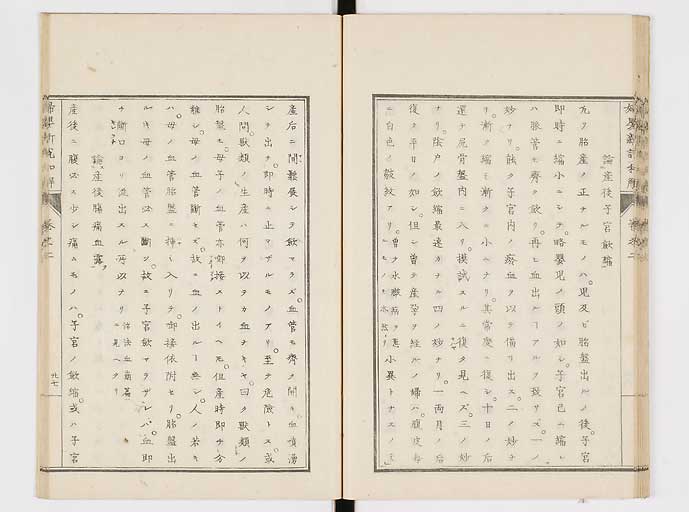 論産後子宮歛縮
凢ヲ胎産ノ正ナルモノハ。児及ビ胎盤出ルノ後。子宮
即時ニ縮小ニシテ。略嬰児ノ頭ノ如シ。子宮已ニ縮レ
ハ脹管モ齊ク歛リ。再ヒ血出ルヿアルヲ致サズ。一ノ
妙ナリ。餘ク子宮内ノ瘀血ヲ以テ備リ出ス。二ノ妙ナ
リ。漸ク縮ミ漸ク小ヘナリ。其常度ニ復シ。十日ノ后
還テ尻骨盤内ニ入リ。摸試スルニ復タ見ヘズ。三ノ妙
ナリ。陰戸ノ歛縮最速カナル四ノ妙ナリ。一両月ノ后
復タ平日ノ如シ。但シ曽テ産孕ヲ経ルノ婦ハ。腹皮毎
ニ白色ノ皺紋アリ。曽テ水皷病ヲ患ルモノモ亦然リ小異トナスノミ
産后ニ間鬆展シテ歛マラズ。血管モ齊ク開キ血噴湧
シテ出テ。即時ニ止マザルモノアリ。至テ危險トス。或
人問。獣類ノ生産ハ何ヲ以テカ血ナキヤ。曰ク獣類ノ
胎盤モ。母子ノ血管亦啣接ストイヘモ。但産時即チ分
離シ。母ノ血管断セズ。故ニ血ノ出ルヿ無シ。人ノ若キ
ハ。母ノ血管胎盤ニ挿ミ入リテ。啣接依附セリ。胎盤出
ルキ母ノ血管必ス断ツ。故ニ子宮歛マラザレバ。血即
チ断口ヨリ流出スル所以ナリ治法血崩篇ニ見ヘタリ
論産後腸痛血露
産後ニ腹必ス少シ痛ムモノハ。子宮ノ歛縮。或ハ子宮
婦嬰新説和解 巻之二 九七